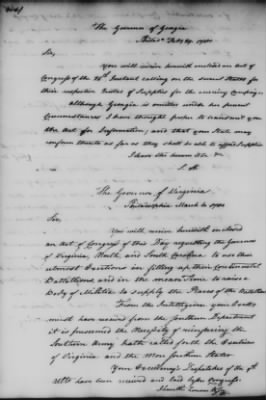 The Governor of Georgia
Sir,
You will receive herewith enclosed an Act of
Congress of the 24th Instant calling on the several States for
their respective Quotas of Supplies for the ensuing Campaign
although Georgia is omitted under her present
Circumstances I have thought proper to transmit you
the Act for Information; and that your State may
conform thereto as far as they shall be able to afford Supplies
I have the honor &c &c
S. H.
The Governor of Virginia
Philadelphia March 4 1780
Sir,
You will receive herewith enclosed
an Act of Congress of this Day requesting the Governors
of Virginia, North, and South Carolina to use their
utmost Exertions in filling up their Continental
Battalions, and in the mean Time to raise a
Body of Militia to supply the Places of the
From the Intelligence your Excellency
must have received from the Southern Department
it is presumed the Necessity of reinforcing the
Southern Army hath called forth the Exertion
of Virginia and the more Southern States
Your Excellency's Dispatches of the
have been received and laid before Congress.